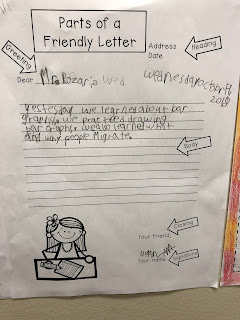 Parts of a
Friendly Letter
Greeting
Address
Date
Heading
Dear Mr. Rozario Wed
Wednesday October 17
2018
Yesterday we learned about bar
graphs. we practiced drawing
bar graphs. we also learned what
and why people Migrate.
Body
Closing
Your friend,
Your name
Signature